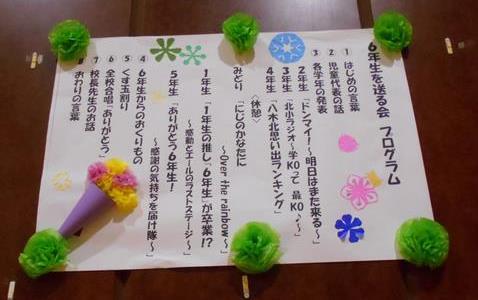 6年生を送る会 プログラム
① はじめの言葉
② 児童代表の話
③ 各学年の発表
2年生「ドンマイ!~明日はまた来る~」
3年生「北小ラジオ~学KOって 最KO♪~」
4年生「八木北思い出ランキング」
〈休憩〉
みどり「にじのかなたに
~Over the rainbow~」
1年生「1年生の推し「6年生」が卒業!?
~感動とエールのラストステージ~」
5年生「ありがとう6年生!
~感謝の気持ちを届け隊~」
④ 6年生からのおくりもの
⑤ くす玉割り
⑥ 全校合唱「ありがとう」
⑦ 校長先生のお話
おわりの言葉